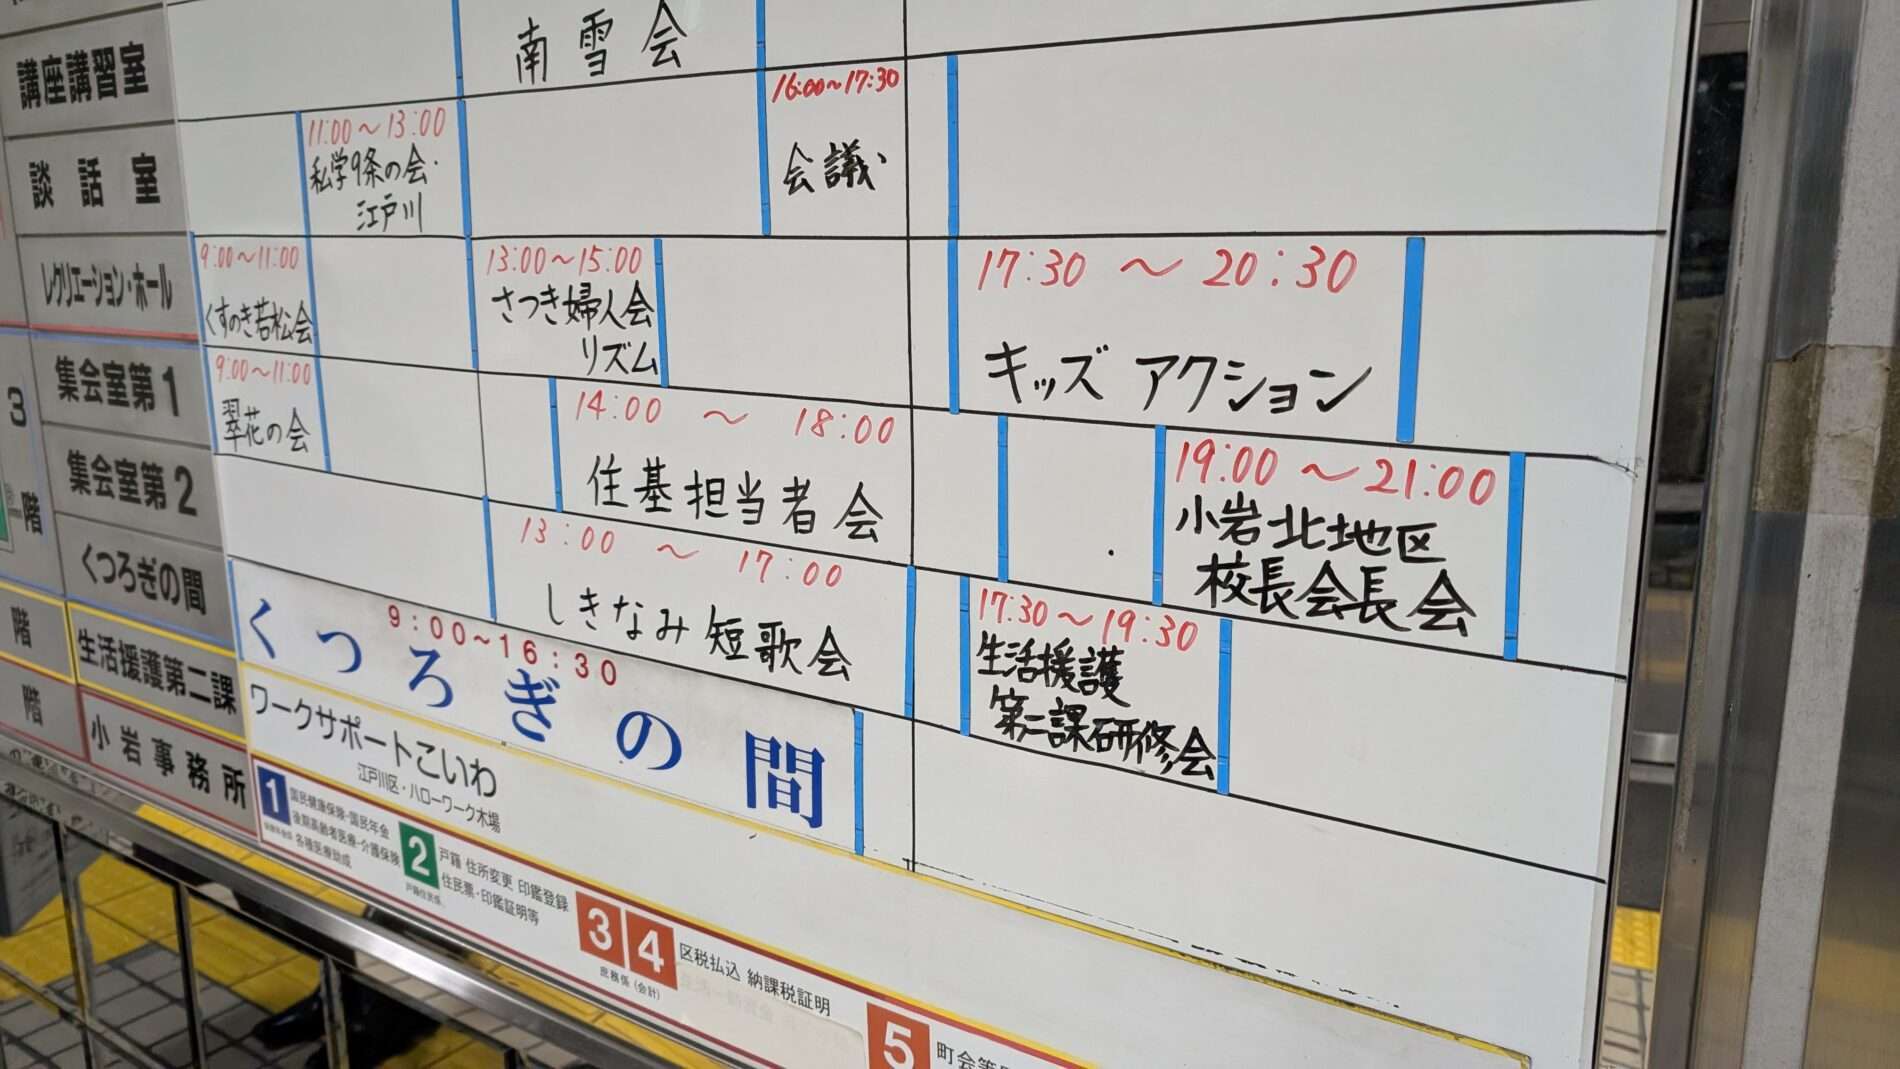 講座講習室
南雪会
談話室
11:00～13:00
私学9条の会・
江戸川
16:00～17:30
会議
レクリエーション・ホール
9:00～11:00
くすのき若松会
13:00～15:00
さつき婦人会
リズム
17:30～20:30
キッズアクション
3
階
集会室第1
9:00～11:00
翠花の会
14:00～18:00
住基担当者会
19:00～21:00
小岩北地区
校長会長会
集会室第2
13:00～17:00
しきなみ短歌会
17:30～19:30
生活援護
第二課研修会
くつろぎの間
9:00～16:30
くつろぎの間
階
生活援護第二課
ワークサポートこいわ
江戸川区・ハローワーク木場
階
小岩事務所
1
国民健康保険・国民年金
後期高齢者医療・介護保険
各種医療助成
2
戸籍 住所変更 印鑑登録
住民票・印鑑証明等
戸籍住民係
3 4
区税払込 納課税証明
庶務係（会計）
5
町会等